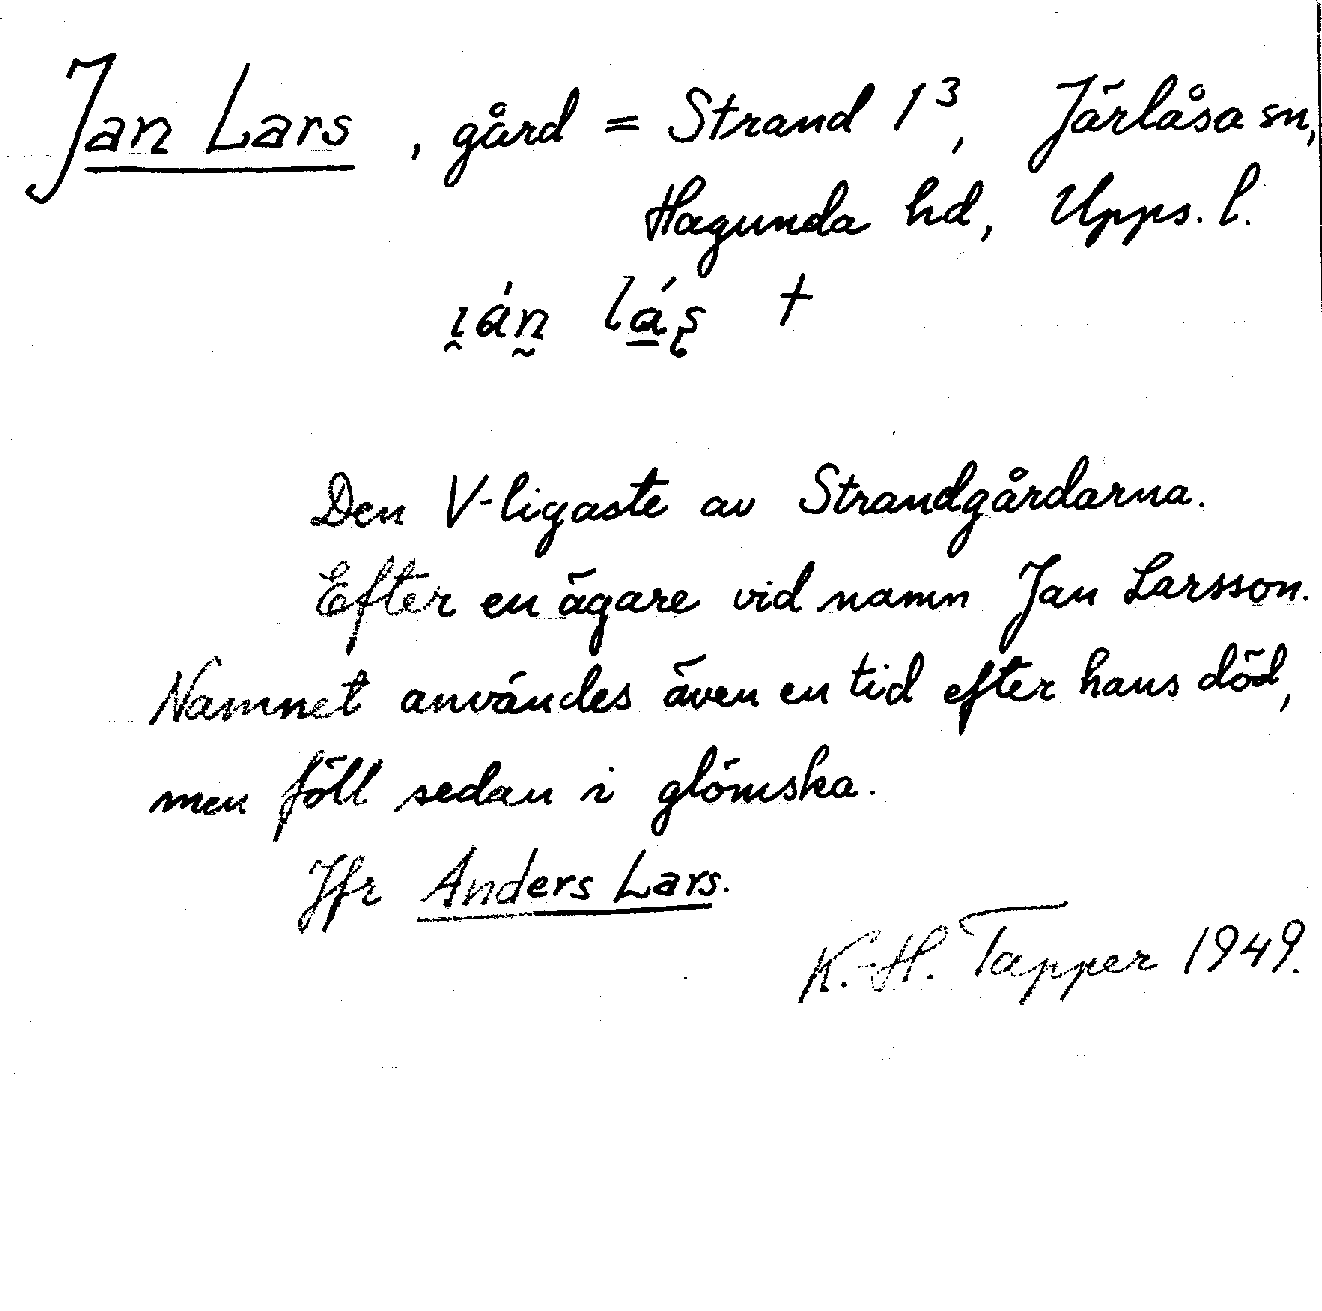 Jan Lars, gård = Strand 1³, Järlåsa sn,
Hagunda hd, Upps. l.
†
Den V-ligaste av Strandgårdarna.
Efter en ägare vid namn Jan Larsson.
Namnet användes även en tid efter hans död,
men föll sedan i glömska.
Jfr Anders Lars.
K.-H. Tapper 1949.